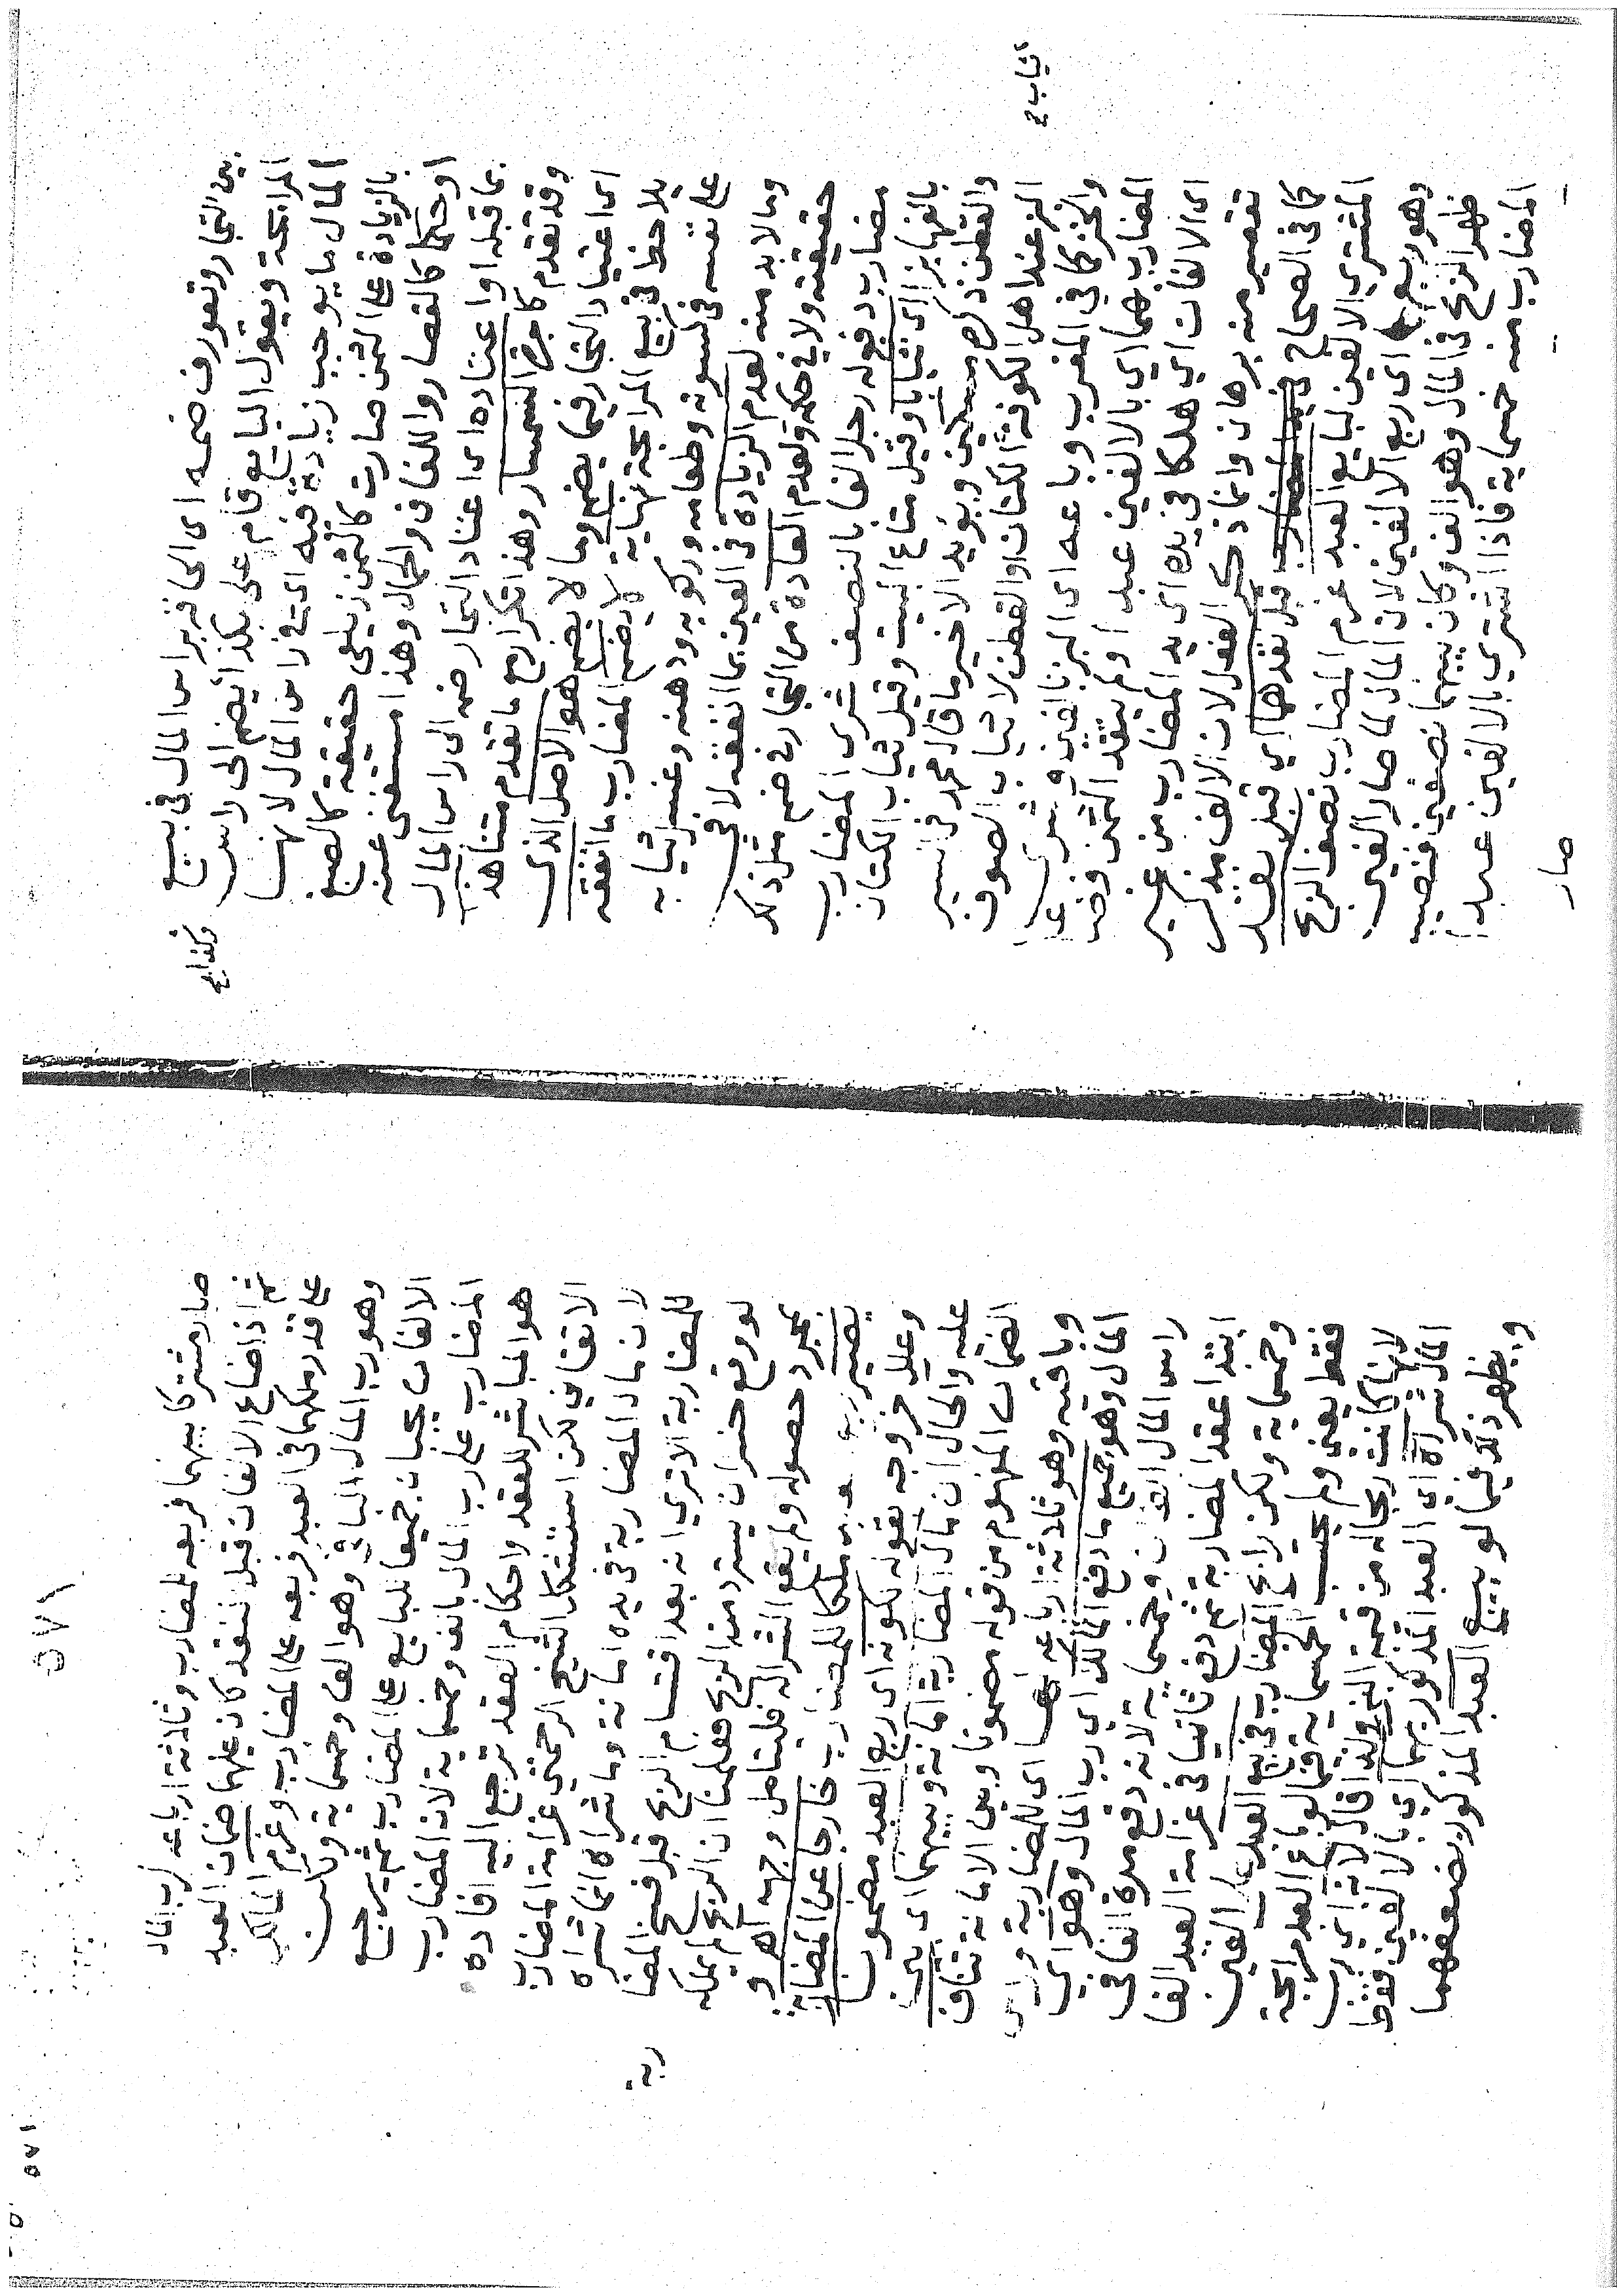 بين التجار وتعورف ضمه اى الحاقه براس المال فى بيع
المرابحة ويقول البايع قام على بكذا يضم الى راس
المال ما يوجب زيادة فيه اى فى راس المال لانها
بالزيادة على الثمن صارت كالثمن زيلعى حقيقة كالصبغ
او حكما كالقصار واللفاف والحمال وهذا مستغنى عنه
بما قبله او اعتاده اى اعتاد التجار ضمه الى راس المال
وقد تقدم كاجرة السمسار وهذا تكرار مع ما تقدم متناهذا
اى اعتياد التجار فيما يضم وما لا يضم هو الاصل الذى
يلاحظ فى بيع المرابحة نهاية لا يضم المضارب ما انفقه
على نفسه فى كسوته وطعامه وركوبه ودهنه وغسل ثيابه
وما لا بد منه لعدم الزيادة فى العين بما انفقه لا فى
حقيقته ولا فى حكمه ولعدم العادة من التجار فى ضم مثل ذلك
مضارب دفع له رجل الفا بالنصف شرى المضارب
بالفها بزا اى ثيابا وقيل متاع البيت وقيل ثياب الكتان
والقطن ذكره مسكين ويؤيد الاخير ما قال محمد فى السير
البز عند اهل الكوفة الكتان او القطن لا ثياب الصوف
والخز كما فى المغرب وباعه اى البز بالفين وشرى
المضارب بهما اى بالالفين عبدا ولم ينقد الثمن وضاعا
اى الالفان اى هلكا فى يده اى يد المضارب من غير
تقصير منه برهان وانما ذكر الفعل لان الالف مذكر
كما فى الصحاح قبل نقدهما اى قبل نقد
المشترى الالفين لبايع العبد غرم المضارب نصف الربح
وهو ربعهما اى ربع الالفين لان المال لما صار الفين
ظهر الربح فى المال وهو الف وكان بينهما نصفين فنصيب
المضارب منه خمسماية فاذا اشترى بالالفين عبدا
صار
وكذا صح
الثياب صح
١٨٥
صار مشتركا بينهما فربعه للمضارب وثلاثة ارباعه لرب المال
ثم اذا ضاع الالفان قبل النقد كان عليهما ضمان العبد
على قدر ملكهما فى العبد فربعه على المضارب وغرم المالك
وهو رب المال الباقى وهو الف وخمسماية ولكن
الالفان يجبان جميعا للبايع على المضارب ثم يرجع
المضارب على رب المال بالف وخمسماية لان المضارب
هو المباشر للعقد واحكام العقد ترجع اليه افاده
الاتقانى لكن استشكل الشيخ الرحمتى غرامة المضارب
لان مال المضاربة فى يده امانة وما شراه انما شراه
للمضاربة الا ترى انه بعد اقتسام الربح قبل فسخ المضا
لو وقع خسران يسترد منه الربح فعلمنا ان الربح لم يملكه
بمجرد حصوله ولم يقع الشرا له فليتامل وجهه اهـ و
يصير ربعه ملكا للمضارب خارجا عن المضاربة
وعلل خروجه بقوله لكونه اى ربع العبد مضمون
عليه والحال ان مال المضاربة امانة وبينهما اى بين
الضمان المفهوم من قوله مضمونا وبين الامانة تناف
وباقيه وهو ثلاثة ارباعه لها اى للمضاربة وراس
المال وهو جميع ما دفع المالك اى رب المال وهو اى
راس المال الفان وخمسماية لانه دفع مرة الفا فى
ابتدا عقد المضاربة ثم دفع ثانيا فى غرامة العبد الفا
وخمسماية ولكن رابح المضارب فى بيع العبد على الفين
فقط يعنى ولم يحسب الخمسماية فما لو باع العبد مرابحة
لانها كانت ربحا له من قيمة البز ولذا قال لانه اى رب
المال شراه اى العبد المذكور بهما اى بالالفين فقط
ويظهر ذلك فيما لو بيع العبد المذكور بضعفهما
ربة
١٨٥